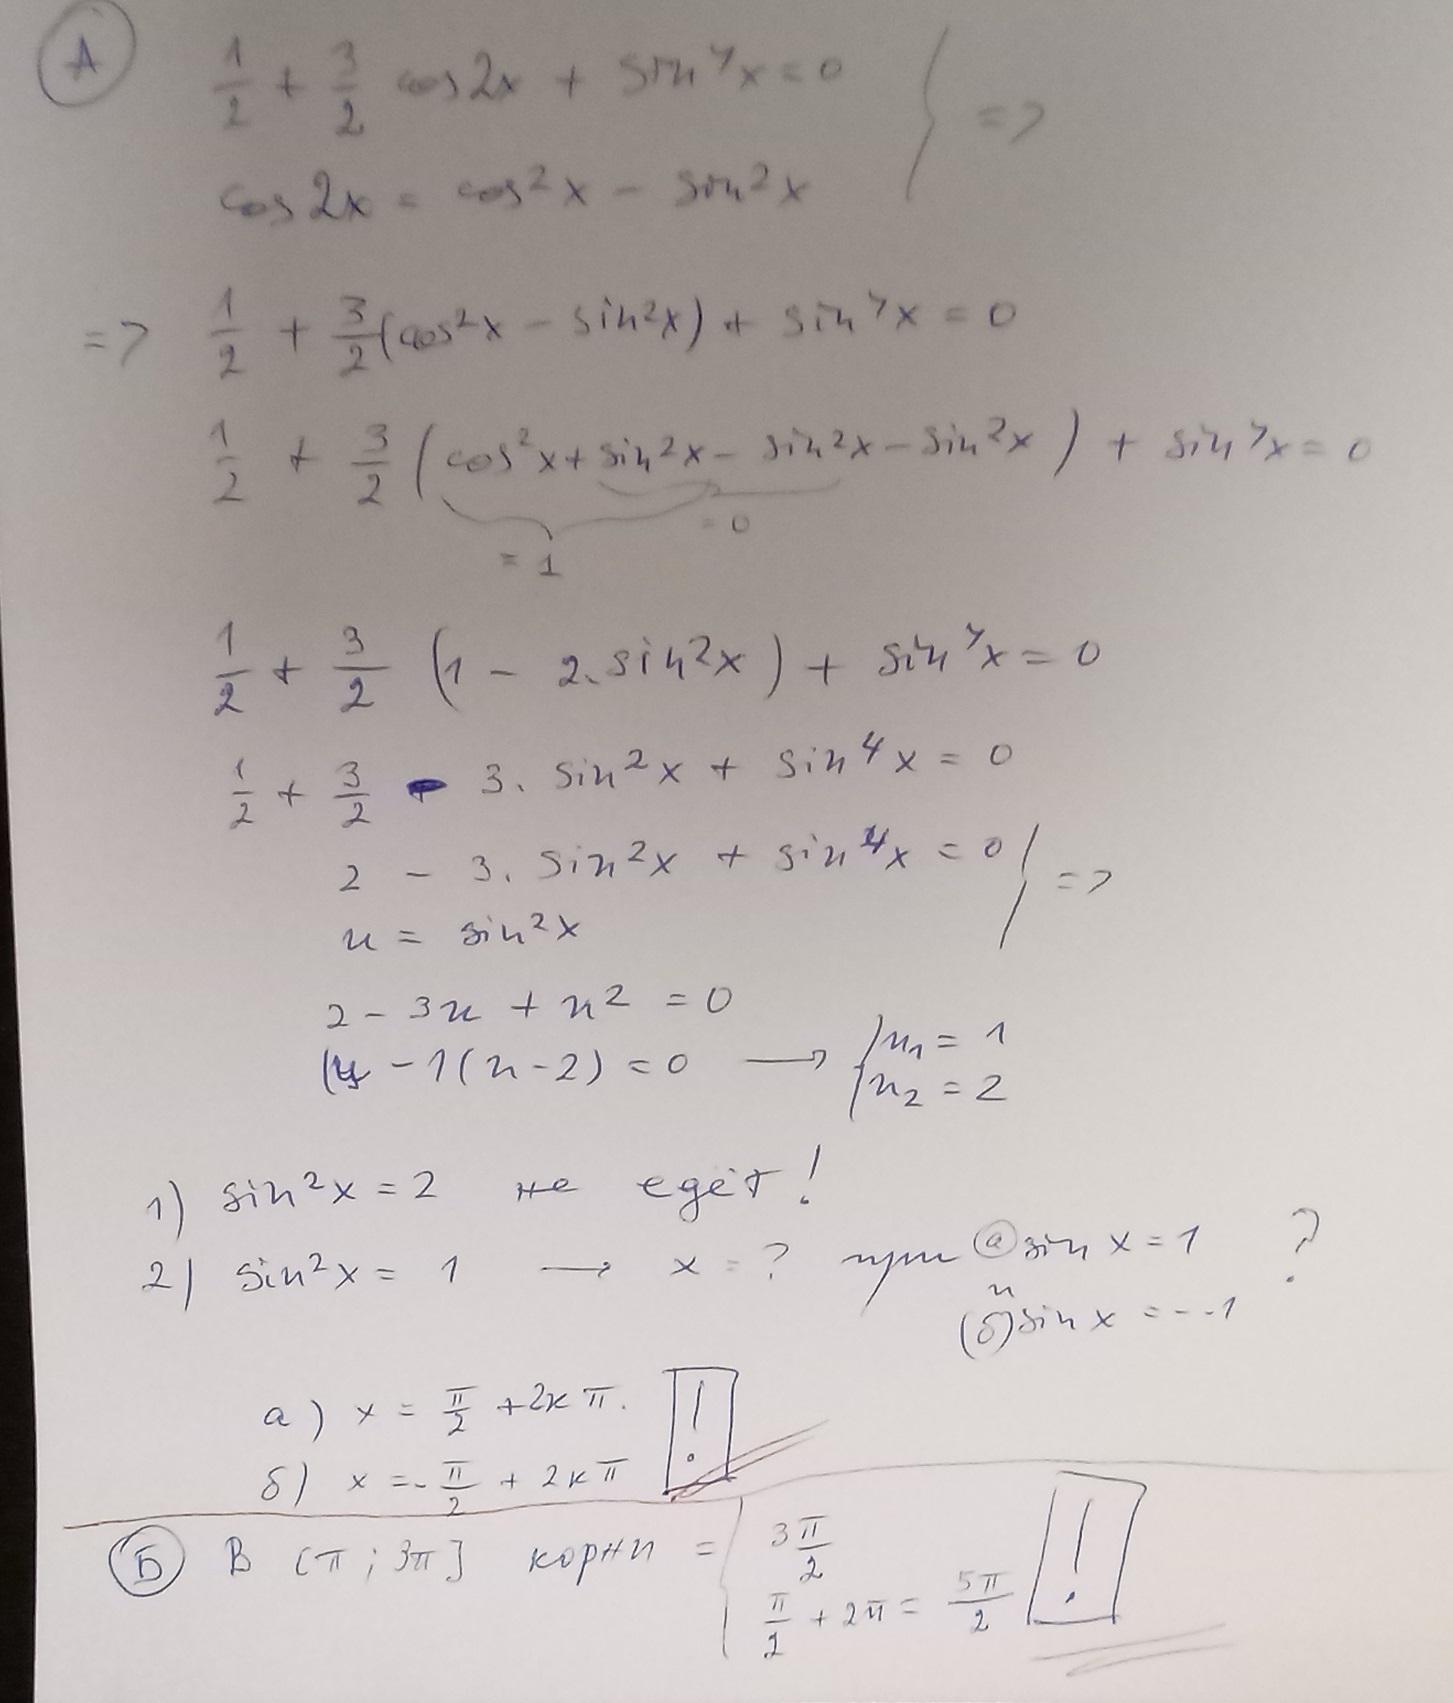 А
1/2 + 3/2 cos2x + sin⁴x = 0 } =>
cos2x = cos²x - sin²x
=> 1/2 + 3/2(cos²x - sin²x) + sin⁴x = 0
1/2 + 3/2 (cos²x + sin²x - sin²x - sin²x) + sin⁴x = 0
= 0
= 1
1/2 + 3/2 (1 - 2·sin²x) + sin⁴x = 0
1/2 + 3/2 - 3·sin²x + sin⁴x = 0
2 - 3·sin²x + sin⁴x = 0 } =>
u = sin²x
2 - 3u + u² = 0
(u - 1(u - 2) = 0 → { u₁ = 1
u₂ = 2
1) sin²x = 2 не едёт!
2) sin²x = 1 → x = ? при (а) sin x = 1 ?
и
(б) sin x = -1
а) x = π/2 + 2кπ. !
б) x = -π/2 + 2кπ
Б В (π; 3π] корни = { 3π/2
π/2 + 2π = 5π/2 !